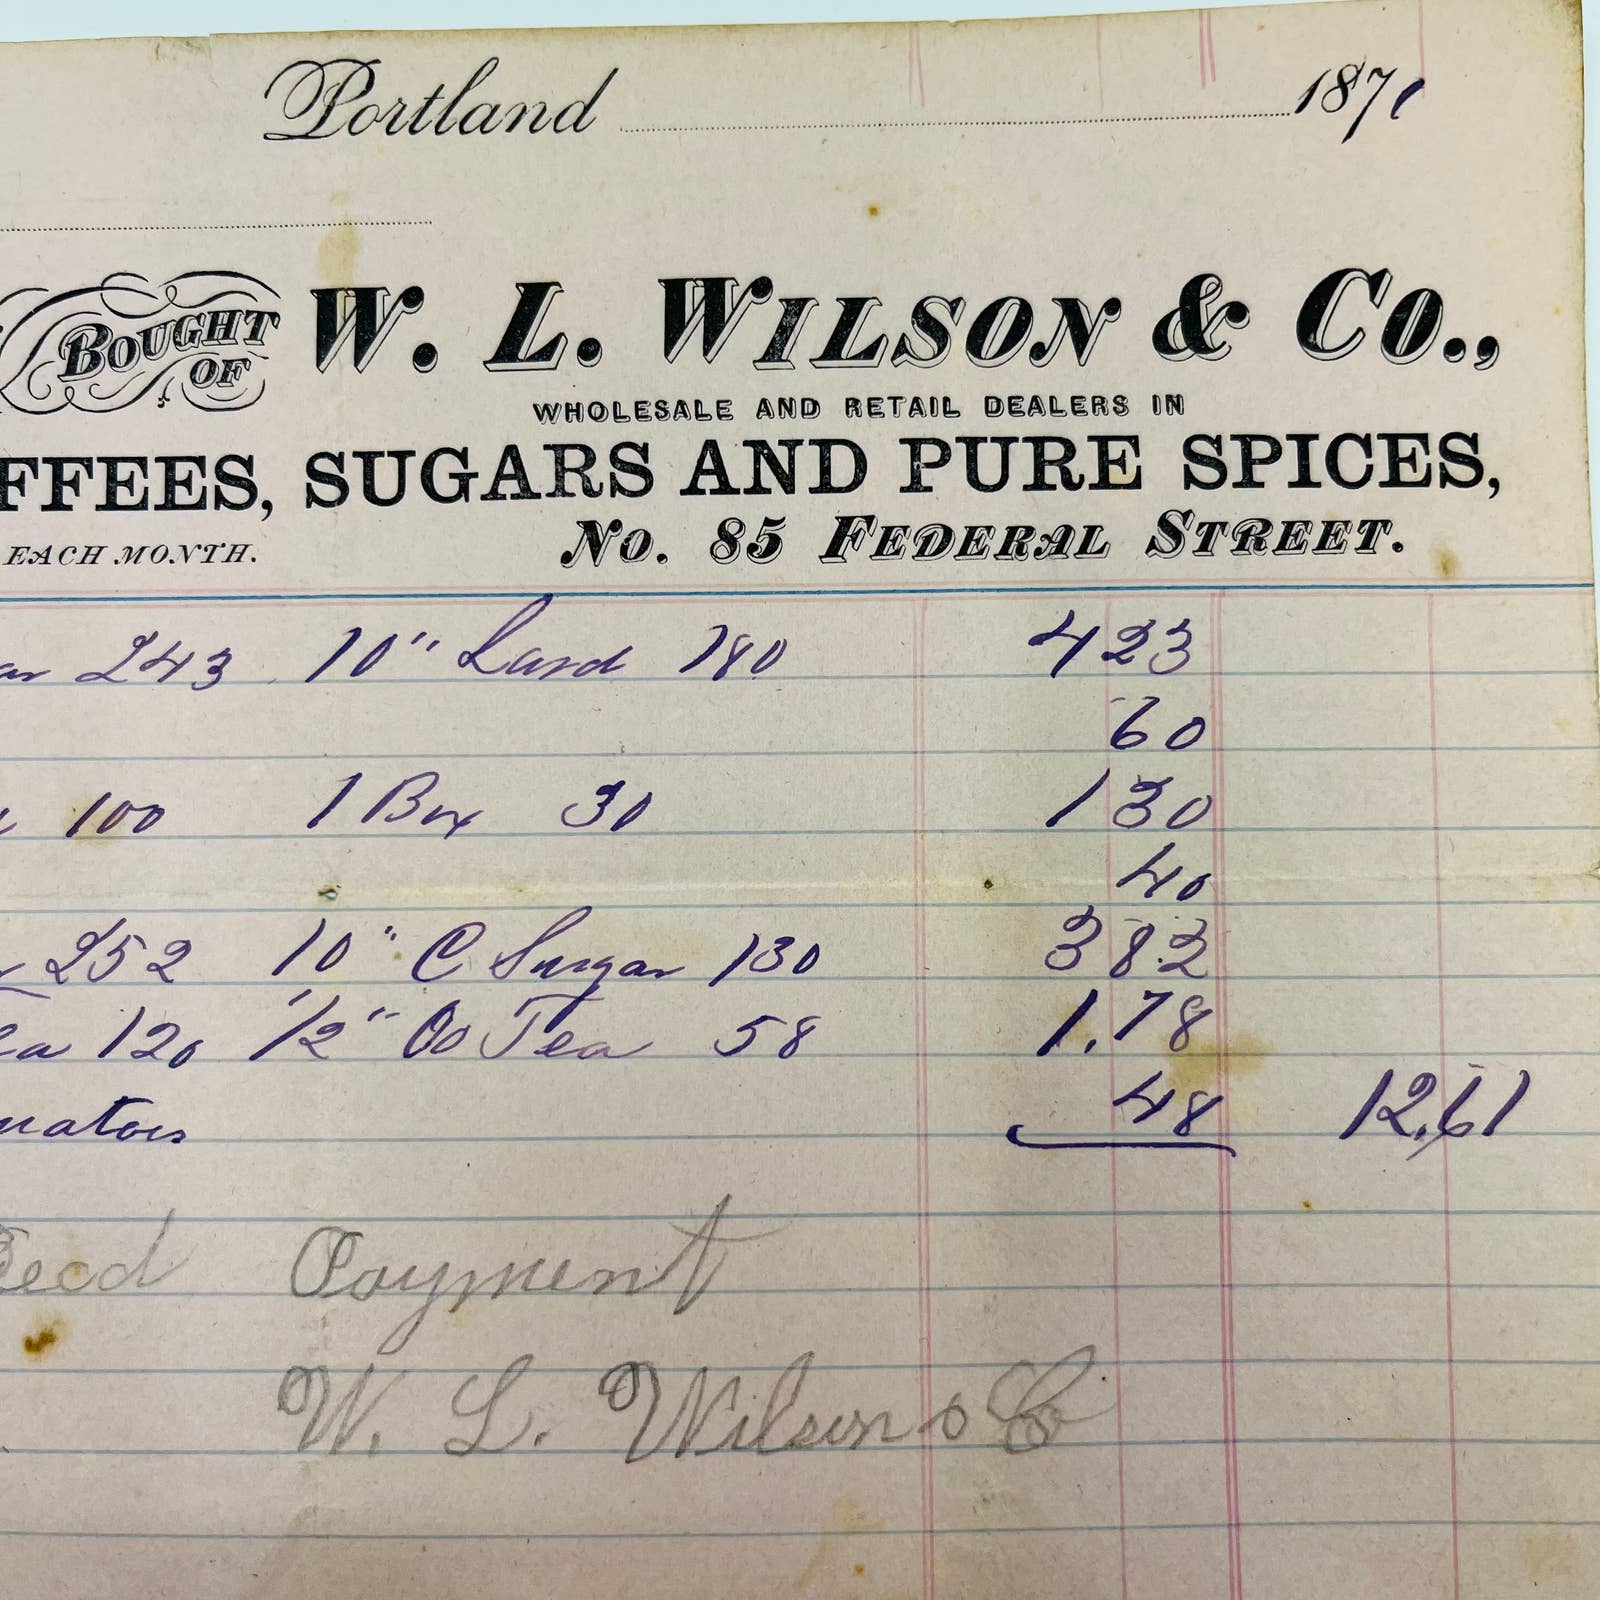 Portland 1871
BOUGHT OF W. L. WILSON & CO.,
WHOLESALE AND RETAIL DEALERS IN
FFEES, SUGARS AND PURE SPICES,
EACH MONTH. No. 85 FEDERAL STREET.
243 10" Lard 180 423
60
100 1 Box 30 130
40
252 10" C Sugar 130 382
120 1/2" Oo Tea 58 1.78
matoes 48 12.61
Recd Payment
W. L. Wilson & Co